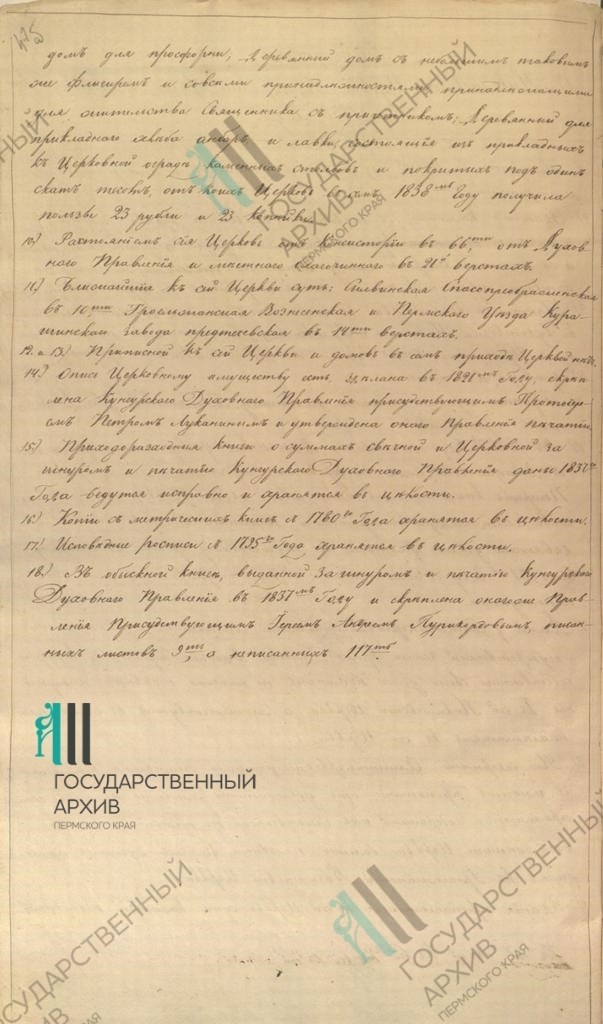 домъ для просфорни, Деревянный домъ съ небольшимъ таковымъ
же флигиремъ и совсеми принадлежностями, принадлежащими
для жительства Священника съ причетникомъ; Деревянный для
прикладнаго хлѣба анбаръ и лавки, состоящія изъ прикладныхъ
къ Церковной оградѣ каменныхъ столбовъ и покрытыхъ подъ одинъ
скатъ тесомъ, отъ коихъ Церковь въ 1838мъ Году получила
ползы 23 рубли и 23 копѣйки.
10.) Разстояніемъ сія Церковь отъ Консисторіи въ 66,ти отъ Духов-
наго Правленія и мѣстнаго благочиннаго въ 21й верстахъ.
11.) Ближайшія къ сей Церкви суть: Сылвинская Спасопреображенская
въ 10,ти Вознесенская и Пермского Уѣзда Кура-
шимскаго завода предтечевская въ 14ти верстахъ.
12. и 13.) Приписной къ сей Церкви и домовъ въ семъ приходѣ Церквей нѣтъ.
14.) Опись Церковному имуществу есть, здѣлана въ 1821мъ Году, скрѣп-
лена Кунгурскаго Духовнаго Правленія присудствующимъ Протоіере-
омъ Петромъ Луканинымъ и утверждена онаго Правленія печатью.
15.) Приходоразходныя книги о суммахъ свѣчной и Церковной за
шнуромъ и печатію Кунгурскаго Духовнаго Правленія даны 1837го
Года ведутся исправно и хранятся въ цѣлости.
16.) Копіи съ метрическихъ книгъ съ 1780го Года хранятся въ цѣлости.
17.) Исповѣдные росписи съ 1795го Года хранятся въ цѣлости.
18.) Въ обыскной книгѣ, выданной за шнуромъ и печатію Кунгурскаго
Духовнаго Правленія въ 1837мъ Году и скрѣплена онагоже Прав-
ленія Присудствующимъ Іереемъ Андреемъ писан-
ныхъ листовъ 9ть, а неписанныхъ 117ть.
ГОСУДАРСТВЕННЫЙ
АРХИВ
ПЕРМСКОГО КРАЯ
ГОСУДАРСТВЕННЫЙ
АРХИВ
ПЕРМСКОГО КРАЯ
ГОСУДАРСТВЕННЫЙ
АРХИВ
ПЕРМСКОГО КРАЯ
ГОСУДАРСТВЕННЫЙ
АРХИВ